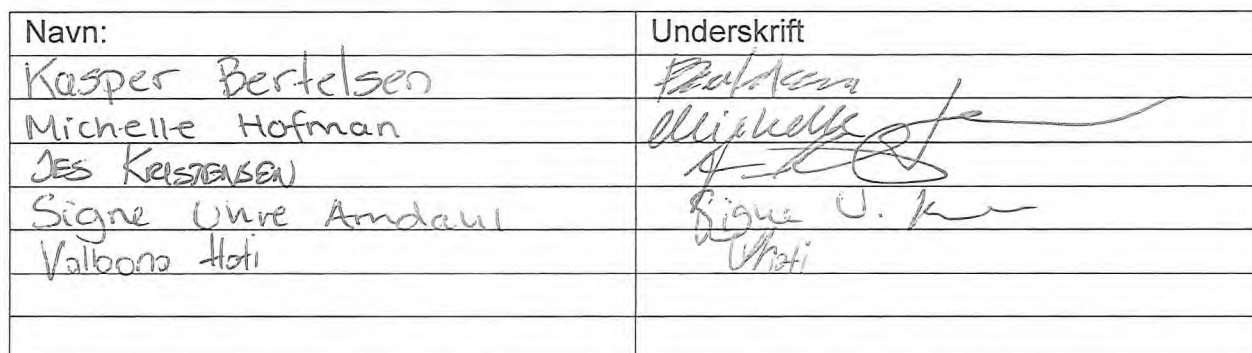 Navn: Underskrift
Kasper Bertelsen
Michelle Hofman Michelle
JES KRISTENSEN
Signe Amdahl Signe U.
Valbona Hoti VHoti